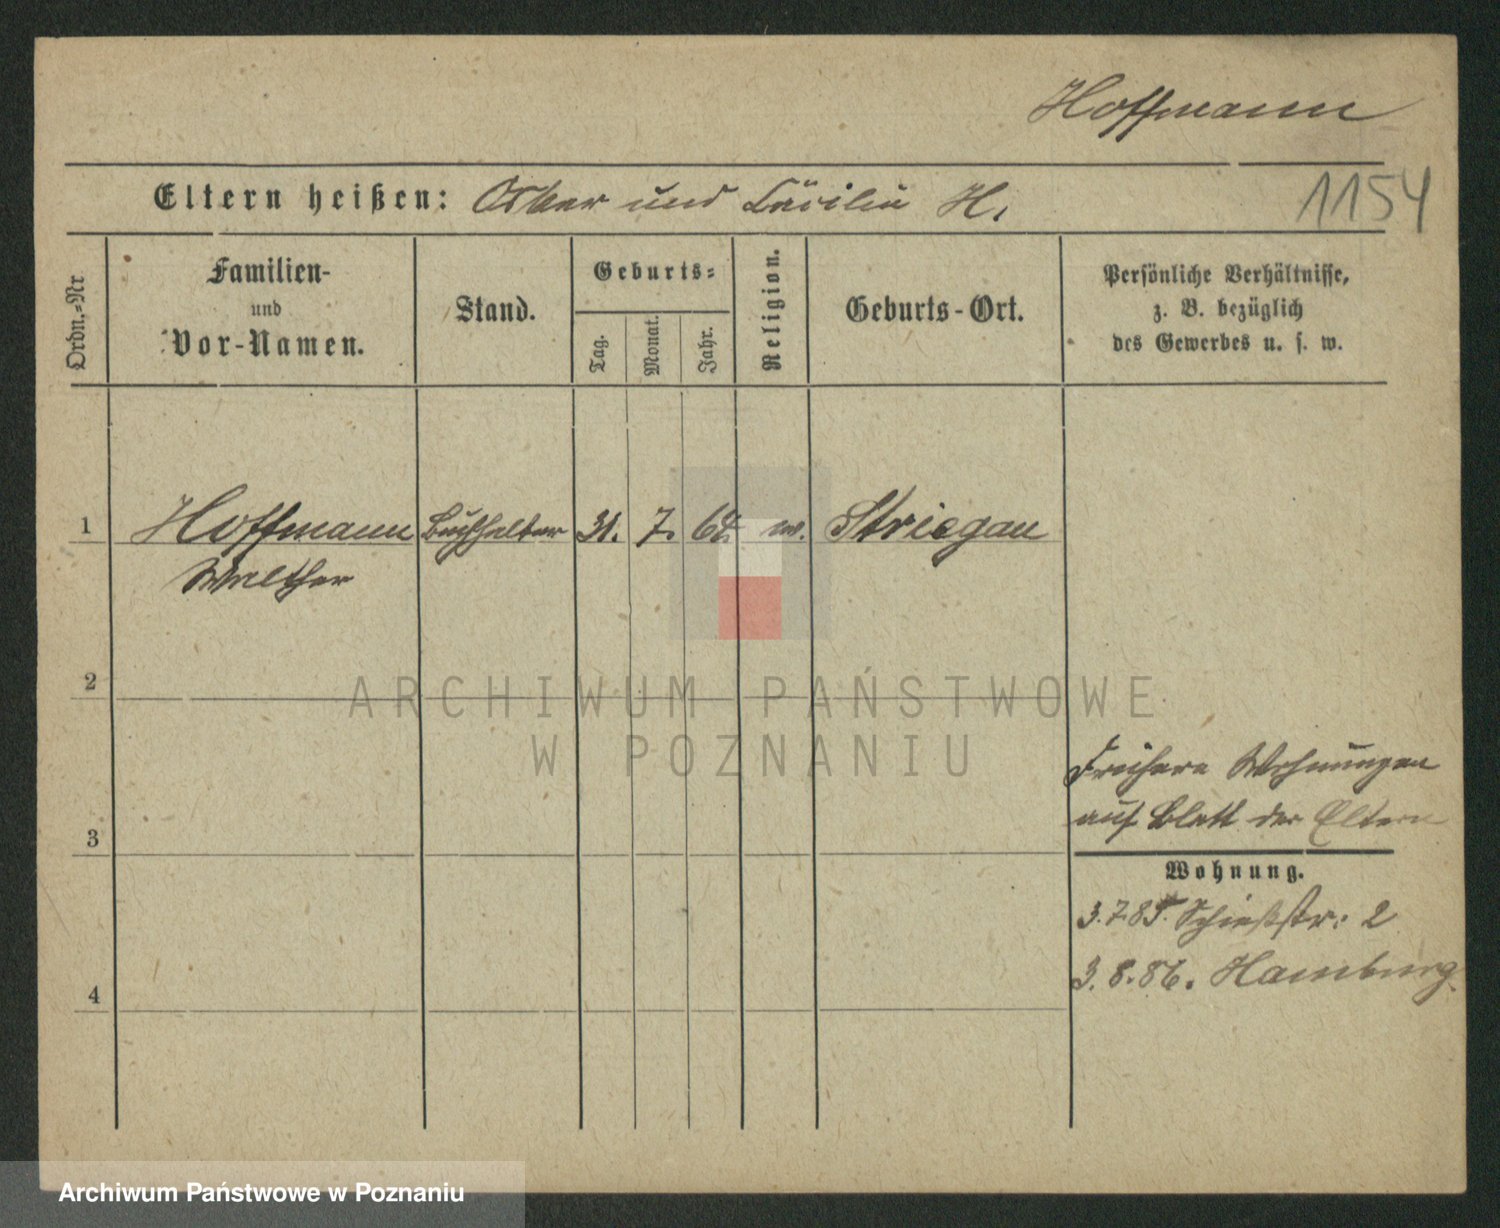 Hoffmann
1154
Eltern heißen: Oskar und Cäcilie H.
Ordn.-Nr
Familien-
und
Vor-Namen.
Stand.
Geburts-
Tag.
Monat.
Jahr.
Religion.
Geburts-Ort.
Persönliche Verhältnisse,
z. B. bezüglich
des Gewerbes u. s. w.
1 Hoffmann Buchhalter 31. 7. w. Striegau
Walther
2
ARCHIWUM PAŃSTWOWE
W POZNANIU
Frühere Wohnungen
auf Blatt der Eltern
3
Wohnung.
3.7.85. Schießstr: 2
3.8.86. Hamburg.
4
Archiwum Państwowe w Poznaniu